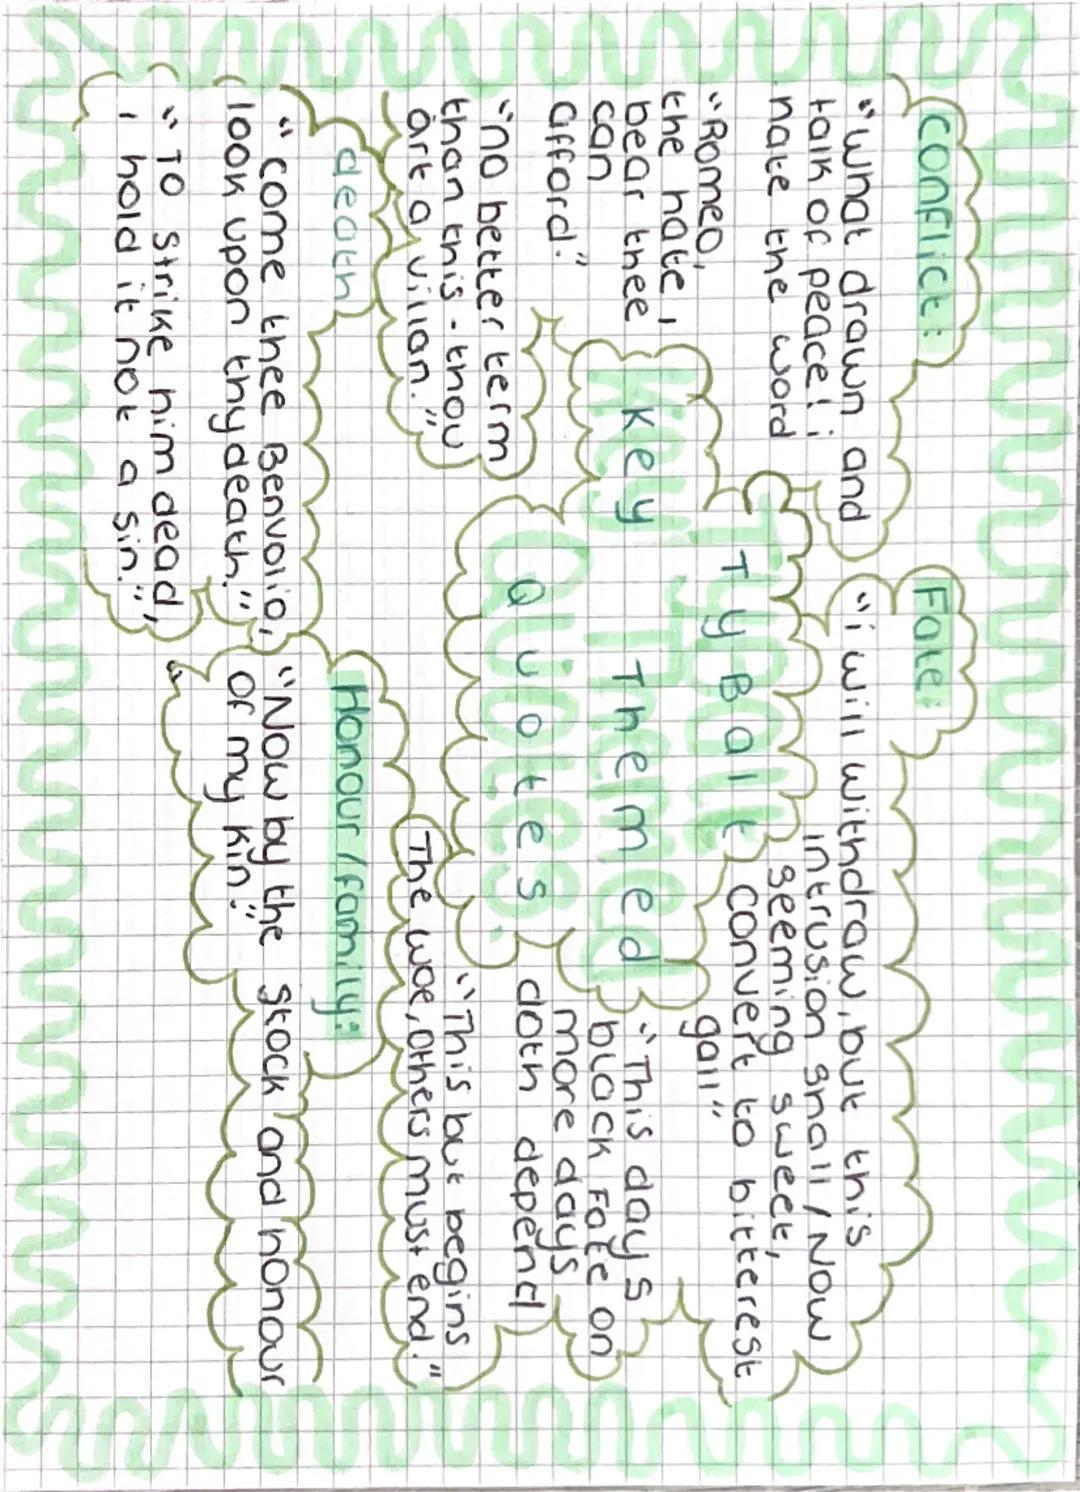 Conflict:
"What drawn and
talk of peace! i
hate the word
"Romeo,
the hate i
bear thee
can
afford."
"no better term
than this - thou
art a villan."
Fate:
"i will withdraw, but this
intrusion small / Now
seeming sweet,
convert to bitterest
gall"
"This day s
black Fate on
more days
doth depend
"This but begins
The woe, others must end."
Key TyBalt
Themed
Quotes
death
"come thee Benvolio,
look upon thy death."
"To Strike him dead,
i hold it not a sin."
Honour/family:
"Now by the stock and honour
of my kin."